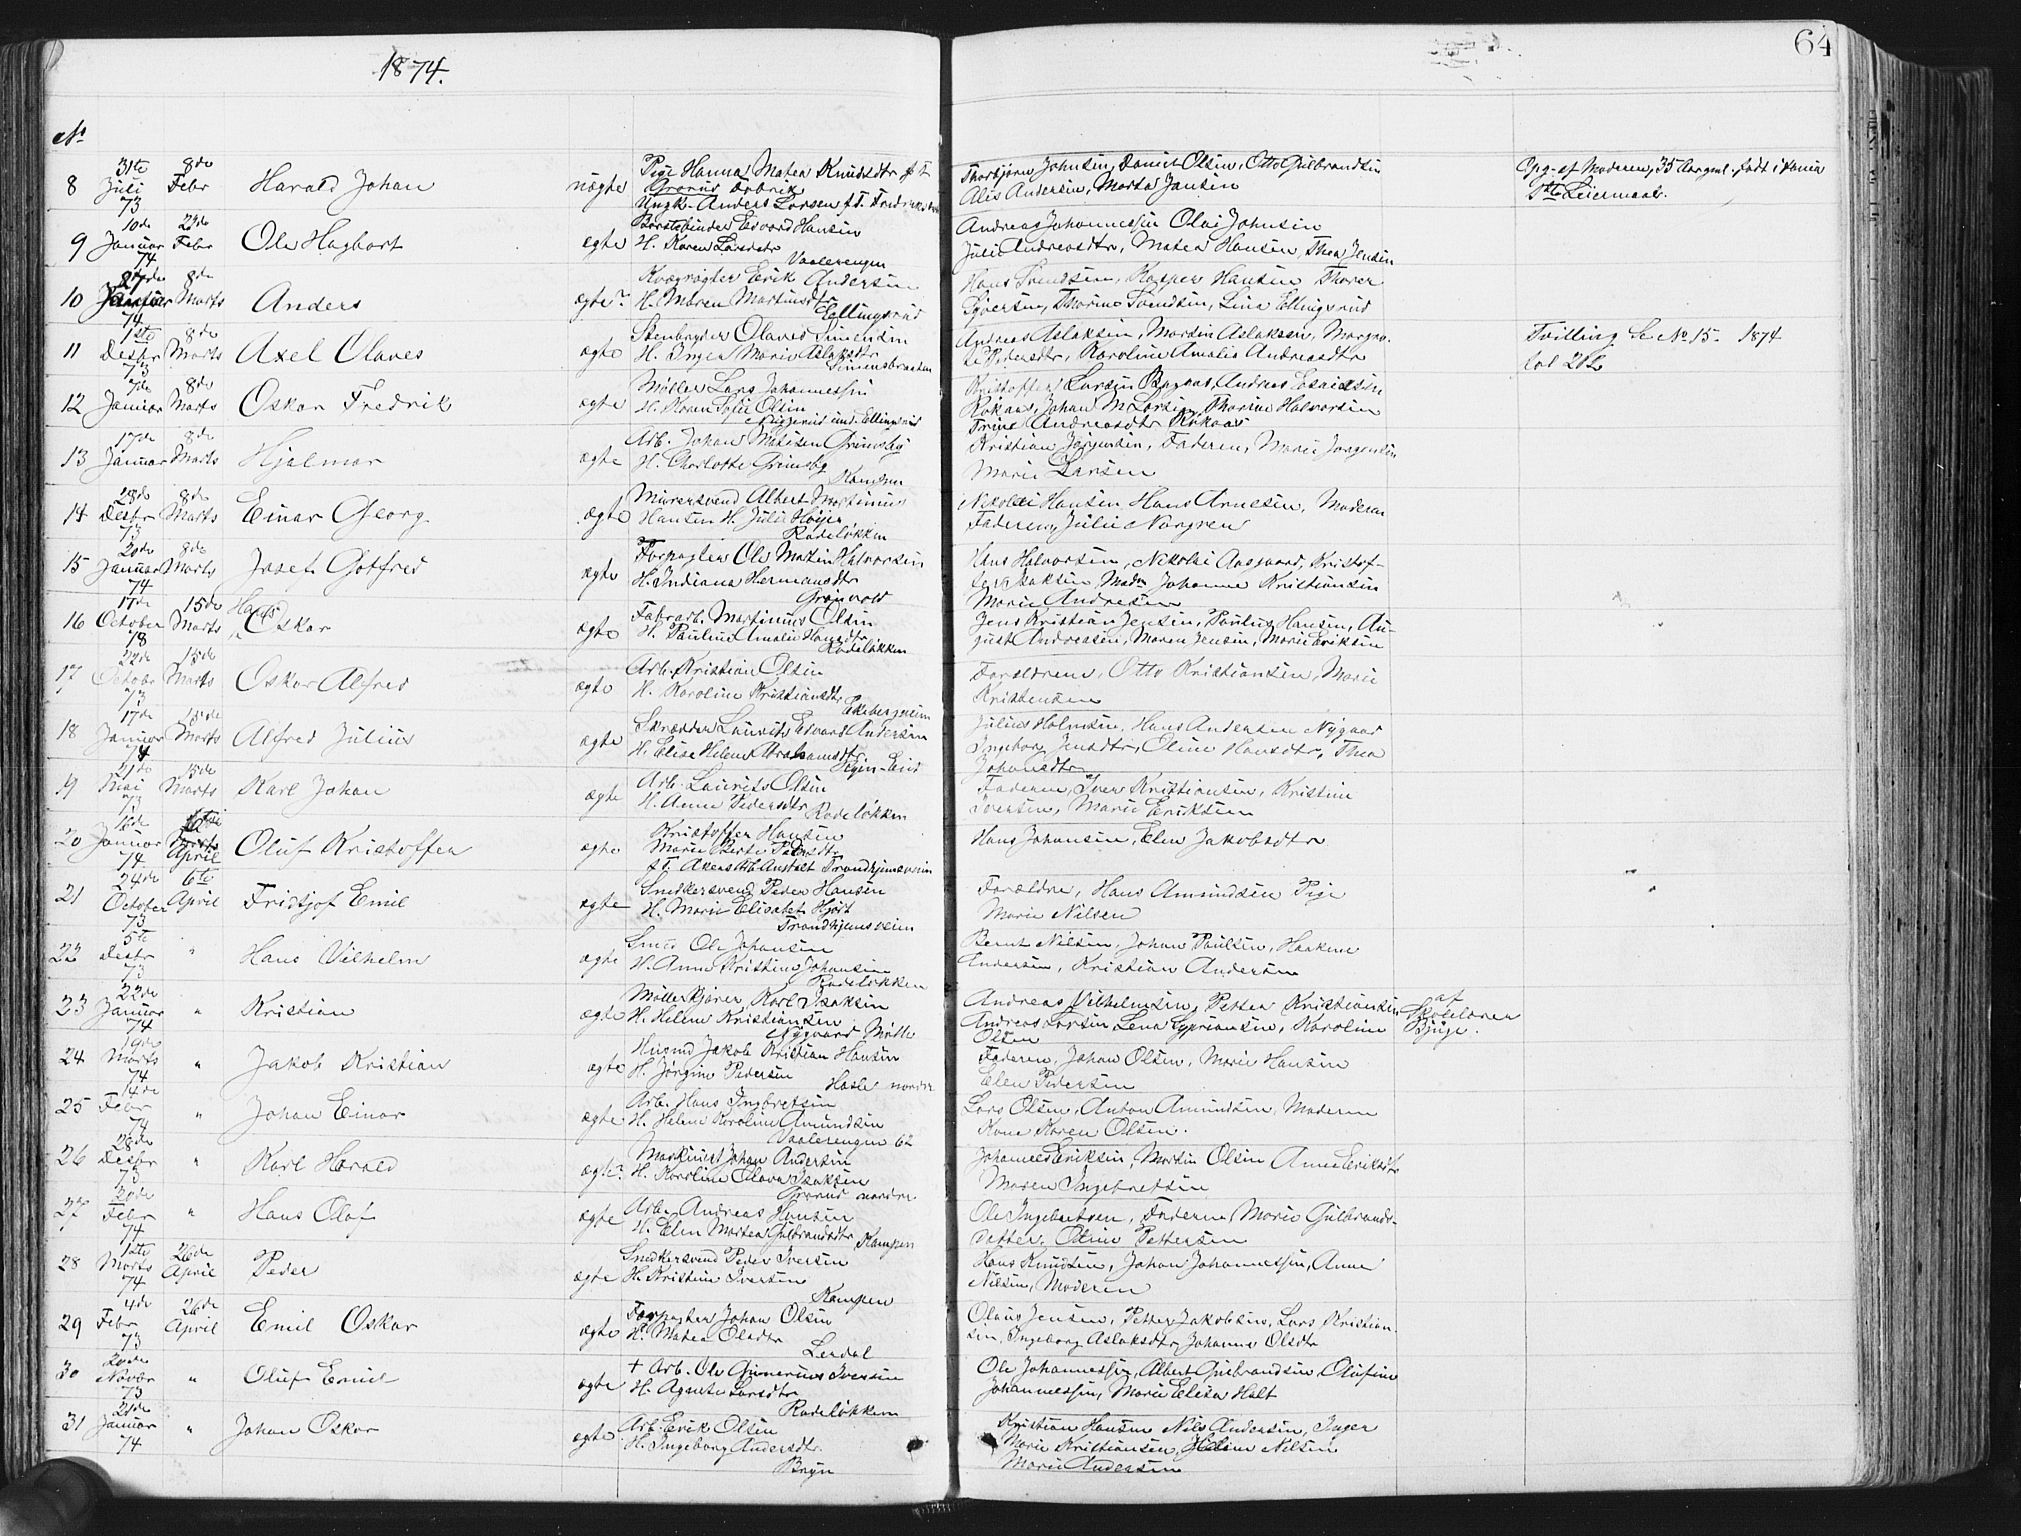 1874.
64
No
31te 8de Pige Hanna Matea Knudsdtr p. T. Thorbjørn Johnsen, Daniel Olsen, Otto Gulbrandsen Opg. af Moderen, 35 Aar gml. født i
8 Juli Febr Harald Johan uægte Grorud Fabrik Alis Andersen, Marta Jansen 1ste Leiermaal.
73 Ungk. Anders Larsen f. T.
10de 22de Børstebinder Edvard Hansen Andreas Johannessen Olai Johnsen
9 Januar Febr Ole Hagbart ægte H. Karen Larsdatr Julie Andreasdtr, Matea Hansen, Thea Jensen
74 Vaalerengen
27de 8de Kvægrøgter Erik Andersen Hans Svendsen, Kasper Hansen Thorer
10 Januar Marts Anders ægte H. Maren Martinusdtr Syversen, Thorine Svendsen, Lina Ellingsrud
74 Ellingsrud
1ste 8de Stenbryder Olaves Simensen Andreas Aslaksen, Martin Aslaksen, Margre-
11 Desbr Marts Axel Olaves ægte H. Inger Marie Aslaksdtr te Pedersdtr, Karoline Amalie Andreasdtr Tvilling Se No 15. 1874
73 Simensbraaten fol 262
7de 8de Møller Lars Johannessen Kristoffer Larsen Andreas
12 Januar Marts Oskar Fredrik ægte H. Karen Sofie Olsen Rökaas, Johan M Larsen, Thorine Halvorsen
und. Ellingsrud Trine Andreasdtr Rökaas
17de 8de Arb. Johan Matisen Grimsby Kristian Jørgensen, Faderen, Marie Jørgensen
13 Januar Marts Hjalmar ægte H. Charlotte Grimsby Marie Larsen
Kampen
28de 8de Murersvend Albert Martinius Nikolai Hansen Hans Arnesen, Moderen
14 Desbr Marts Einar Georg ægte Hansen H. Julie Høyer Faderen, Julie Norgren
73 Rodeløkken
20de 8de Forpagter Ole Martin Halvorsen Hans Halvorsen, Nikolai Aasgaard, Kristof-
15 Januar Marts Josef Gotfred ægte H. Indiana Hermansdtr fer Isaksen Madm Johanne Kristiansen
74 Grønvold Marie Andresen
17de 15de Hans Fabrarb. Martinius Olsen Jens Kristian Jensen, Paulus Hansen, Au-
16 October Marts Oskar ægte H. Pauline Amalie Hansdtr gust Andreasen, Maren Jensen, Marie Eriksen
Rodeløkken
22de 15de Arb. Kristian Olsen Forældrene, Otto Kristiansen, Marie
17 Octobr Marts Oskar Alfred ægte H. Karoline Kristiansdtr Kristensen
73 Ekebergveien
17de 15de Skræder Laurits Edvard Andersen Julius Holmsen, Hans Andersen Nygaard
18 Januar Marts Alfred Julius ægte H. Elise Helene Abrahamsdtr Ingebor Jensdtr, Oline Hansdtr, Thea
74 Johansdtr
15de Arb. Laurits Olsen Faderen, Iver Kristiansen, Kristine
19 Mai Marts Karl Johan ægte H. Anne Pedersdtr Iversen, Marie Eriksen
73 Rodeløkken
16de Kristoffer Hansen Hans Johansen, Elen Jakobsdtr
20 Januar April Oluf Kristoffer ægte Marie Berte Pedersdtr
74 f. T. Akers Arb. Anstalt Trondhjemsveien
24de 6te Snedkersvend Peder Hansen Forældre, Hans Amundsen Pige
21 October April Fridtjof Emil ægte H. Marie Elisabet Hjort Marie Nilsen
73 Trondhjemsveien
5te Smed Ole Johansen Bernt Nilsen, Johan Paulsen, Haakine
22 Desbr " Hans Vilhelm ægte H. Anne Kristine Johansen Endersen, Kristian Andersen
73 Rodeløkken
22de Møllekjører Karl Isaksen Andreas Vilhelmsen, Petter Kristiansen af
23 Januar " Kristian ægte H. Helene Kristiansen Andreas Larsen Lena Cypriansen, Karoline Skolelærer
74 Nygaard Mølle Olsen Bjüge.
19de Husmd Jakob Kristian Hansen Faderen, Johan Olsen, Marie Hansen
24 Marts " Jakob Kristian ægte H. Jørgine Pedersen Elen Pedersen
74 Hasle nordre
14de Arb. Hans Ingbretsen Lars Olsen, Anton Amundsen, Moderen
25 Febr " Johan Einar ægte H. Helene Karoline Amundsen Kone Karen Olsen.
74 Vaalerengen 62
28de Maskinist Johan Andersen Johannes Eriksen, Martin Olsen Anne Eriksdtr
26 Desbr " Karl Harald ægte H. Karoline Olava Isaksen Maren Ingebretsen
73 Grorud nordre
20de Arb. Andreas Hansen Ole Ingebretsen, Faderen, Marie Gulbrands-
27 Febr " Hans Olaf ægte H. Elen Martea Gulbrandsdtr datter, Oline Pettersen
74 Kampen
12te 26de Snedkersvend Peder Iversen Hans Knudsen, Johan Johannessen, Anne
28 Marts April Peder ægte H. Kristine Iversen Nilsen, Moderen
74 Kampen
4de 26de Forpagter Johan Olsen Olaus Jensen, Petter Jakobsen, Lars Kristian-
29 Febr April Emil Oskar ægte H. Matea Olsdtr sen, Ingeborg Aslaksdtr, Johanne Olsdtr
73 Lerdal
20de + Arb. Ole Gunerius Iversen Ole Johannessen, Albert Gulbrandsen Olufine
30 Novbr " Oluf Emil ægte H. Agnete Larsdtr Johannessen, Marie Elisa Holt
73 Rodeløkken
21de Arb. Erik Olsen Kristian Hansen Nils Andersen, Inger
31 Januar " Johan Oskar ægte H. Ingeborg Andersdtr. Marie Kristiansen, Helene Nilsen
74 Bryn Marie Andersen